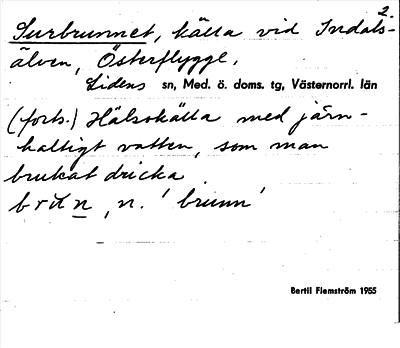 2.
Surbrunnet, källa vid Indals-
älven, Österflygge,
Lidens sn, Med. ö. doms. tg, Västernorrl. län
(forts.) Hälsokälla med järn-
haltigt vatten, som man
brukat dricka
n. 'brunn'
Bertil Flemström 1955